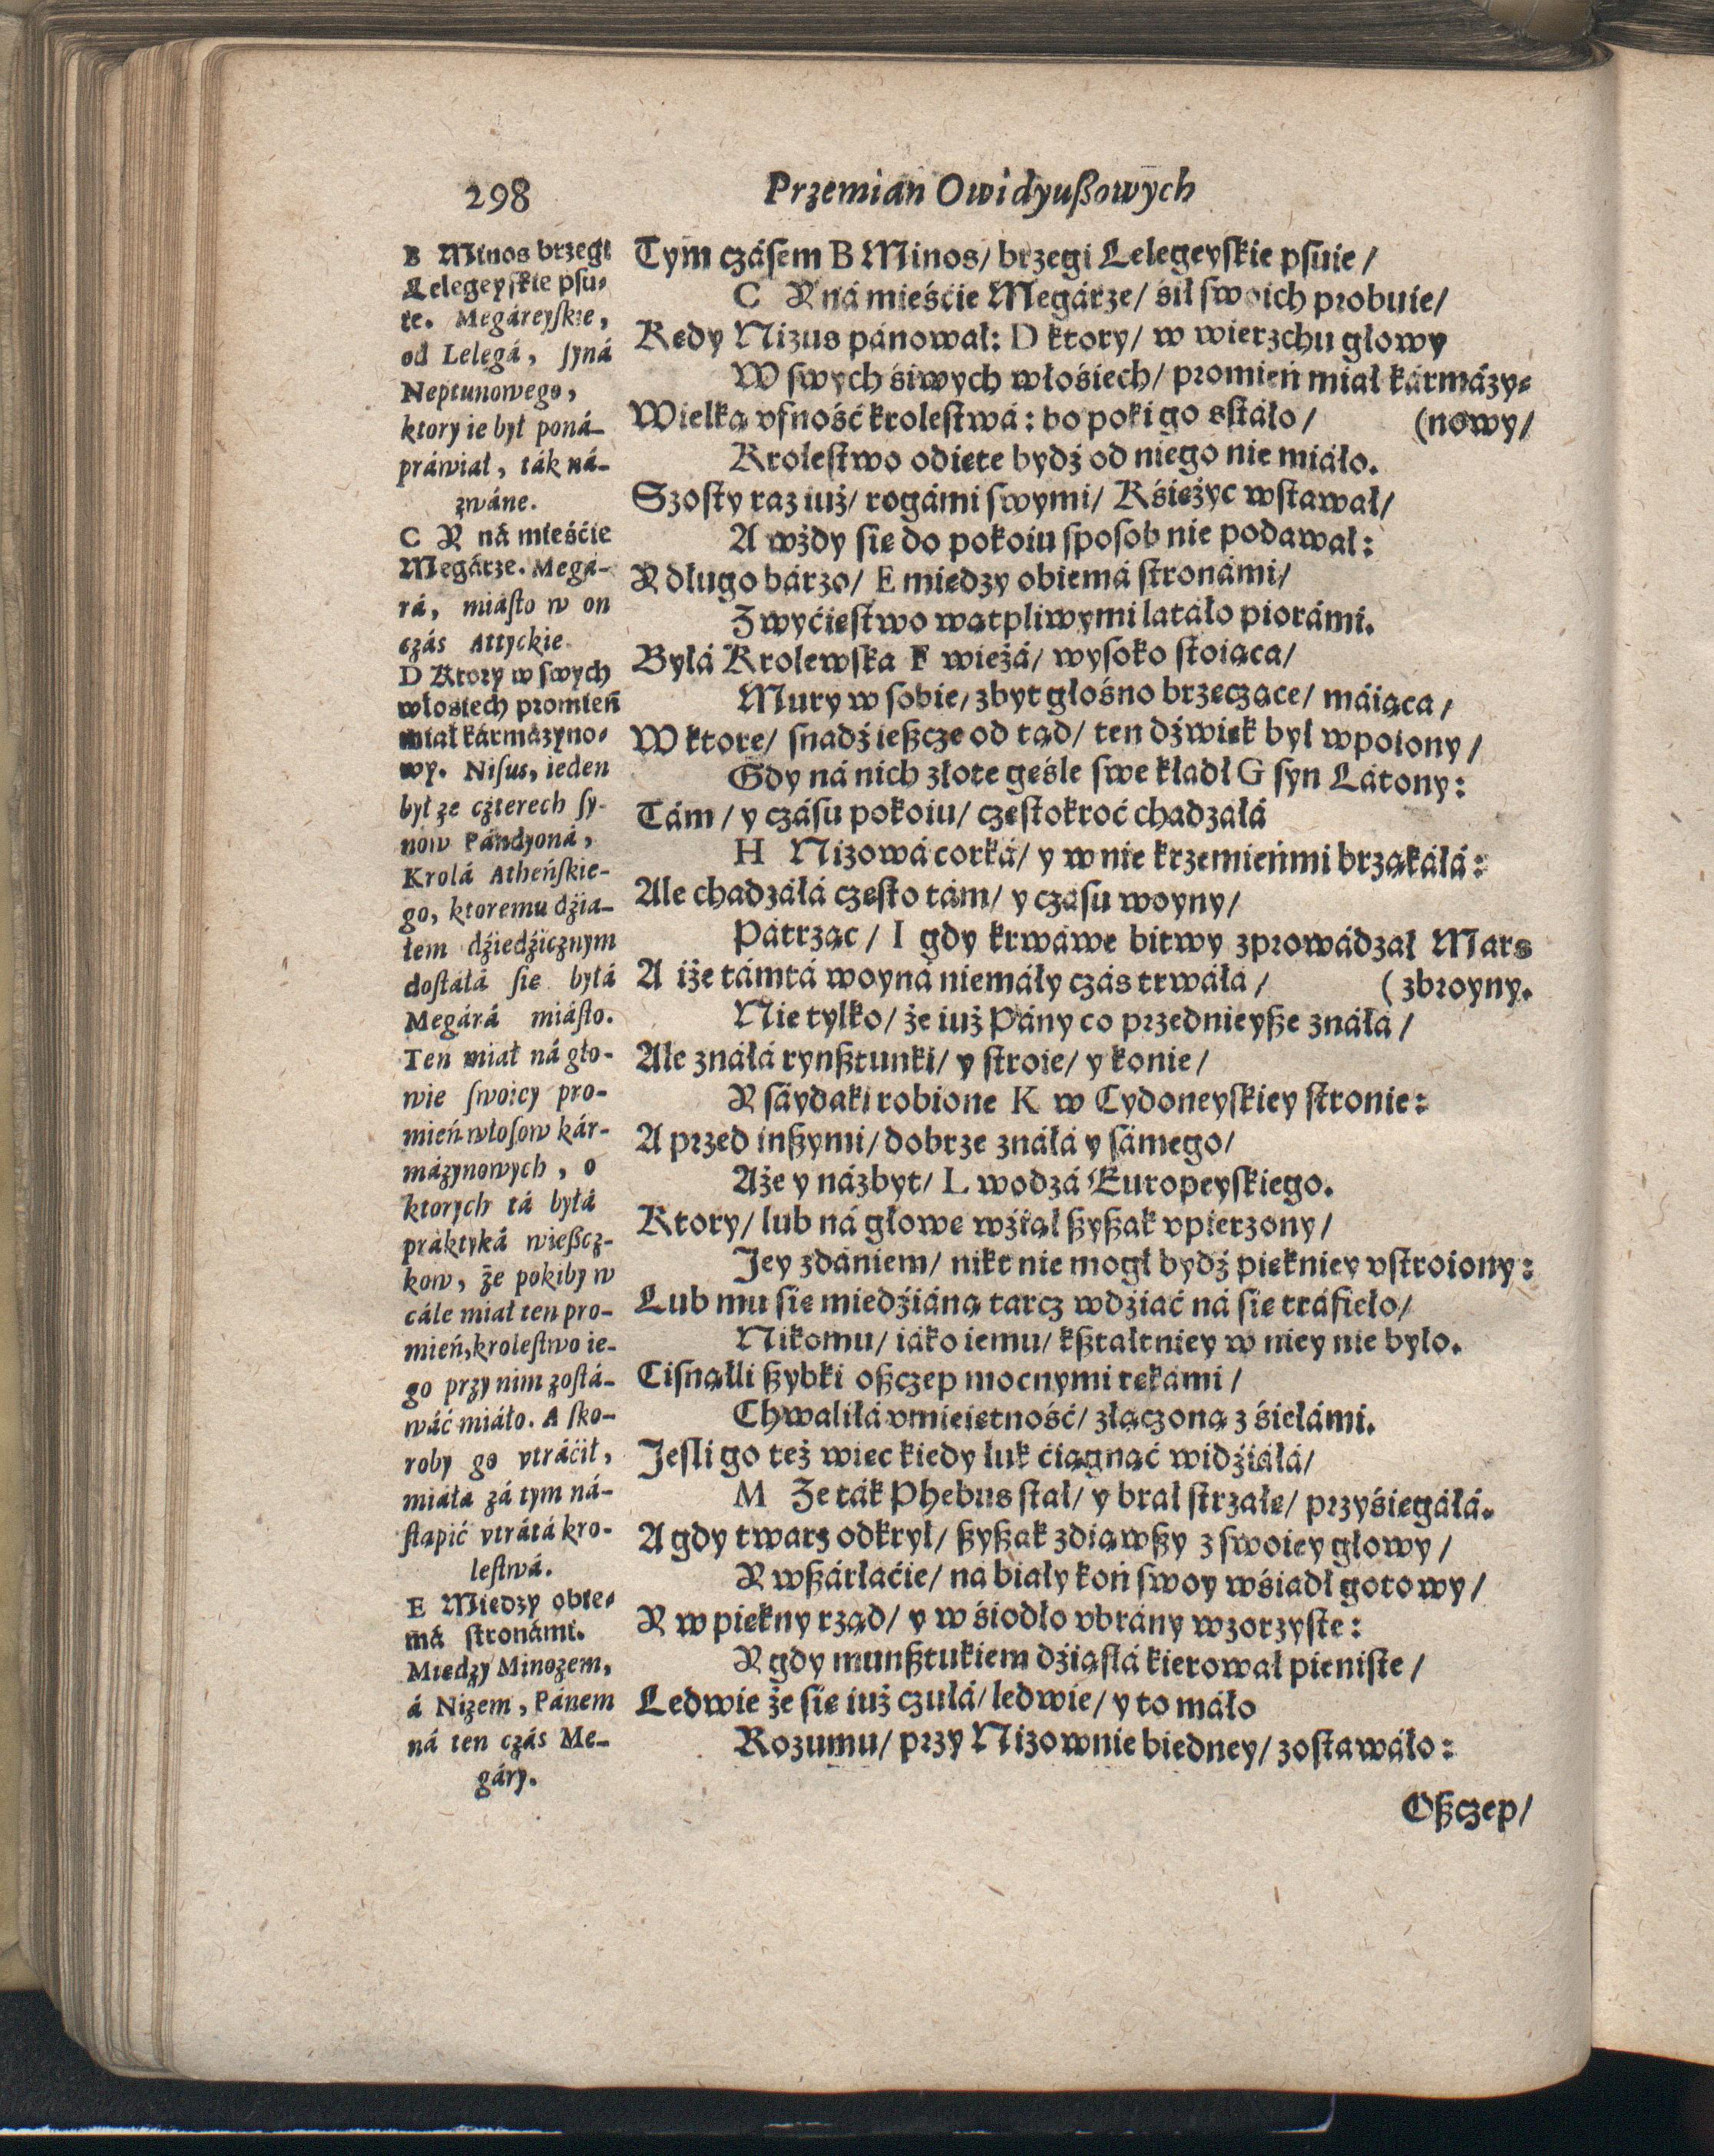 298
Przemian Owidyußowych
B Minos brzegi
Lelegeyſkie pſu-
ie. Megáreyſkie,
od Lelegá, ſyná
Neptunowego,
ktory ie był poná-
práwiał, ták ná-
zwáne.
C Y ná mieśćie
Megárze. Megá-
rá, miáſto w on
czás Attyckie.
D Ktory w ſwych
włosiech promień
miał kármázyno-
wy. Niſus, ieden
był ze czterech ſy-
now Pándyoná,
Krolá Atheńſkie-
go, ktoremu dźia-
łem dźiedźicznym
doſtáłá ſie byłá
Megárá miáſto.
Ten miał ná gło-
wie ſwoiey pro-
mień włoſow kár-
mázynowych, o
ktorych tá byłá
práktyká wießcz-
kow, że pokiby w
cále miał ten pro-
mień, kroleſtwo ie-
go przy nim zoſtá-
wáć miáło. A ſko-
roby go vtráćił,
miáła zá tym ná-
ſtąpić vtrátá kro-
leſtwá.
E Miedzy obie-
má ſtronámi.
Miedzy Minozem,
á Nizem, Pánem
ná ten czás Me-
gáry.
Tym czáſem B Minos/ brzegi Lelegeyſkie pſuie/
C Y ná mieśćie Megárze/ śił ſwoich probuie/
Kędy Nizus pánował: D ktory/ w wierzchu głowy
W ſwych śiwych włośiech/ promień miał kármázy-
Wielką vfność kroleſtwá: bo poki go sſtáło/ (nowy/
Kroleſtwo odięte bydź od niego nie miáło.
Szoſty raz iuż/ rogámi ſwymi/ Kśiężyc wſtawał/
A wżdy ſie do pokoiu ſpoſob nie podawał:
Y długo bárzo/ E miedzy obiemá ſtronámi/
Zwyćięſtwo wątpliwymi latáło piorámi.
Byłá Krolewſka F wieżá/ wyſoko ſtoiąca/
Mury w ſobie/ zbyt głośno brzęczące/ máiąca/
W ktore/ ſnadź ießcze od tąd/ ten dźwięk był wpoiony/
Gdy ná nich złote gęśle ſwe kładł G ſyn Látony:
Tám/ y czáſu pokoiu/ częſtokroć chadzáłá
H Nizowá corká/ y w nie krzemieńmi brząkáłá:
Ale chadzáłá częſto tám/ y czáſu woyny/
Pátrząc/ I gdy krwáwe bitwy zprowádzał Mars
A iże támtá woyná niemáły czás trwáłá/ (zbroyny.
Nie tylko/ że iuż Pány co przednieyße znáłá/
Ale znáłá rynßtunki/ y ſtroie/ y konie/
Y ſáydaki robione K w Cydoneyſkiey ſtronie:
A przed inßymi/ dobrze znáłá y ſámego/
Aże y názbyt/ L wodzá Europeyſkiego.
Ktory/ lub ná głowę wźiął ßyßak vpierzony/
Jey zdániem/ nikt nie mogł bydź piękniey vſtroiony:
Lub mu ſie miedźiáną tarcz wdźiać ná ſię tráfieło/
Nikomu/ iáko iemu/ kßtałtniey w niey nie było.
Ciſnąłli ßybki oßczep mocnymi rękámi/
Chwaliłá vmieiętność/ złączoną z śiełámi.
Jeſli go też więc kiedy łuk ćiągnąć widźiáłá/
M Że ták Phebus ſtał/ y brał ſtrzałę/ przyśięgáłá.
A gdy twarz odkrył/ ßyßak zdiąwßy z ſwoiey głowy/
Y wßárłáćie/ na biały koń ſwoy wśiadł gotowy/
Y w piękny rząd/ y w śiodło vbrány wzorzyſte:
Y gdy munßtukiem dźiąſłá kierował pieniſte/
Ledwie że ſię iuż czułá/ ledwie/ y to máło
Rozumu/ przy Nizownie biedney/ zoſtawáło:
Oßczep/